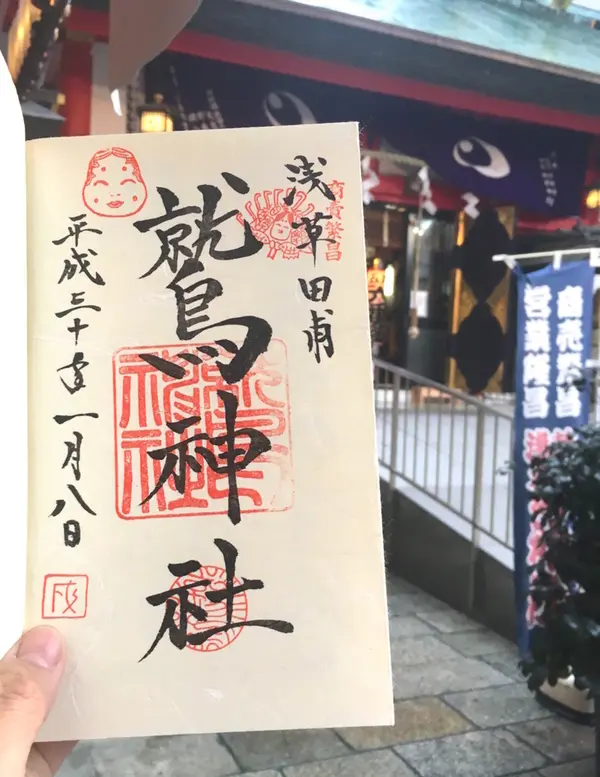 浅草田甫
商売繁昌
鷲神社
鷲神社
平成三十年一月八日
戌
商売繁昌
営業隆昌